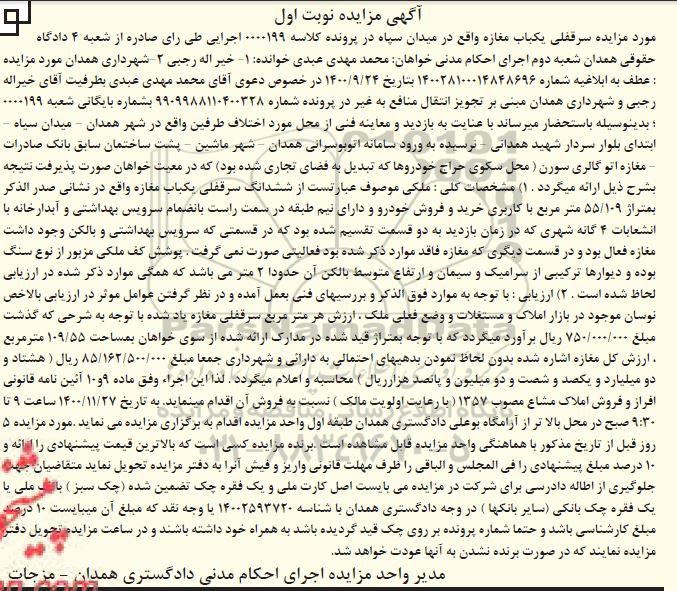 آگهی مزایده نوبت اول
مورد مزایده سرقفلی یکباب مغازه واقع در میدان سپاه در پرونده کلاسه ۰۰۰۰۱۹۹ اجرایی طی رای صادره از شعبه ۴ دادگاه
حقوقی همدان شعبه دوم اجرای احکام مدنی خواهان: محمد مهدی عبدی خوانده: ۱- خیر اله رجبی ۲-شهرداری همدان مورد مزایده
: عطف به ابلاغیه شماره ۱۴۰۰۲۸۱۰۰۰۱۴۸۴۸۶۹۶ بتاریخ ۱۴۰۰/۹/۲۴ در خصوص دعوی آقای محمد مهدی عبدی بطرفیت آقای خیراله
رجبی و شهرداری همدان مبنی بر تجویز انتقال منافع به غیر در پرونده شماره ۹۹۰۹۹۸۸۱۱۰۴۰۰۳۲۸ بشماره بایگانی شعبه ۰۰۰۰۱۹۹
؛ بدینوسیله باستحضار میرساند با عنایت به بازدید و معاینه فنی از محل مورد اختلاف طرفین واقع در شهر همدان – میدان سپاه –
ابتدای بلوار سردار شهید همدانی – نرسیده به ورود سامانه اتوبوسرانی همدان – شهر ماشین – پشت ساختمان سابق بانک صادرات
– مغازه اتو گالری سورن ( محل سکوی حراج خودروها که تبدیل به فضای تجاری شده بود) که در معیت خواهان صورت پذیرفت نتیجه
بشرح ذیل ارائه میگردد . ۱) مشخصات کلی : ملکی موصوف عبارتست از ششدانگ سرقفلی یکباب مغازه واقع در نشانی صدر الذکر
بمتراژ ۵۵/۱۰۹ متر مربع با کاربری خرید و فروش خودرو و دارای نیم طبقه در سمت راست بانضمام سرویس بهداشتی و آبدارخانه با
انشعابات ۴ گانه شهری که در زمان بازدید به دو قسمت تقسیم شده بود که در قسمتی که سرویس بهداشتی و بالکن وجود داشت
مغازه فعال بود و در قسمت دیگری که مغازه فاقد موارد ذکر شده بود فعالیتی صورت نمی گرفت . پوشش کف ملکی مزبور از نوع سنگ
بوده و دیوارها ترکیبی از سرامیک و سیمان و ارتفاع متوسط بالکن آن حدودا ۲ متر می باشد که همگی موارد ذکر شده در ارزیابی
لحاظ شده است . ۲) ارزیابی : با توجه به موارد فوق الذکر و بررسیهای فنی بعمل آمده و در نظر گرفتن عوامل موثر در ارزیابی بالاخص
نوسان موجود در بازار املاک و مستغلات و وضع فعلی ملک ، ارزش هر متر مربع سرقفلی مغازه یاد شده با توجه به شرحی که گذشت
مبلغ ۷۵۰/۰۰۰/۰۰۰ ریال برآورد میگردد که با توجه بمتراژ قید شده در مدارک ارائه شده از سوی خواهان بمساحت ۱۰۹/۵۵ مترمربع
، ارزش کل مغازه اشاره شده بدون لحاظ نمودن بدهیهای احتمالی به دارائی و شهرداری جمعا مبلغ ۸۵/۱۶۲/۵۰۰/۰۰۰ ریال ( هشتاد و
دو میلیارد و یکصد و شصت و دو میلیون و پانصد هزارریال ) محاسبه و اعلام میگردد . لذا این اجراء وفق ماده ۹و۱۰ آئین نامه قانونی
افراز و فروش املاک مشاع مصوب ۱۳۵۷ ( با رعایت اولویت مالک ) نسبت به فروش آن اقدام مینماید. به تاریخ ۱۴۰۰/۱۱/۲۷ ساعت ۹ تا
۹:۳۰ صبح در محل بالا تر از آرامگاه بوعلی دادگستری همدان طبقه اول واحد مزایده اقدام به برگزاری مزایده می نماید .مورد مزایده ۵
روز قبل از تاریخ مذکور با هماهنگی واحد مزایده قابل مشاهده است .برنده مزایده کسی است که بالاترین قیمت پیشنهادی را ارائه و
۱۰ درصد مبلغ پیشنهادی را فی المجلس و الباقی را ظرف مهلت قانونی واریز و فیش آنرا به دفتر مزایده تحویل نماید متقاضیان جهت
جلوگیری از اطاله دادرسی برای شرکت در مزایده می بایست اصل کارت ملی و یک فقره چک تضمین شده (چک سبز ) بانک ملی یا
یک فقره چک بانکی (سایر بانکها ) در وجه دادگستری همدان با شناسه ۱۴۰۰۲۵۹۳۷۲۰ یا وجه نقد که مبلغ آن میبایست ۱۰ درصد
مبلغ کارشناسی باشد و حتما شماره پرونده بر روی چک قید گردیده باشد به همراه خود داشته باشند و در ساعت مزایده تحویل دفتر
مزایده نمایند که در صورت برنده نشدن به آنها عودت خواهد شد.
مدیر واحد مزایده اجرای احکام مدنی دادگستری همدان – مزجات
ParsNamadData
۰۲۱-۸۸۳۴۹۶۷۰-۵